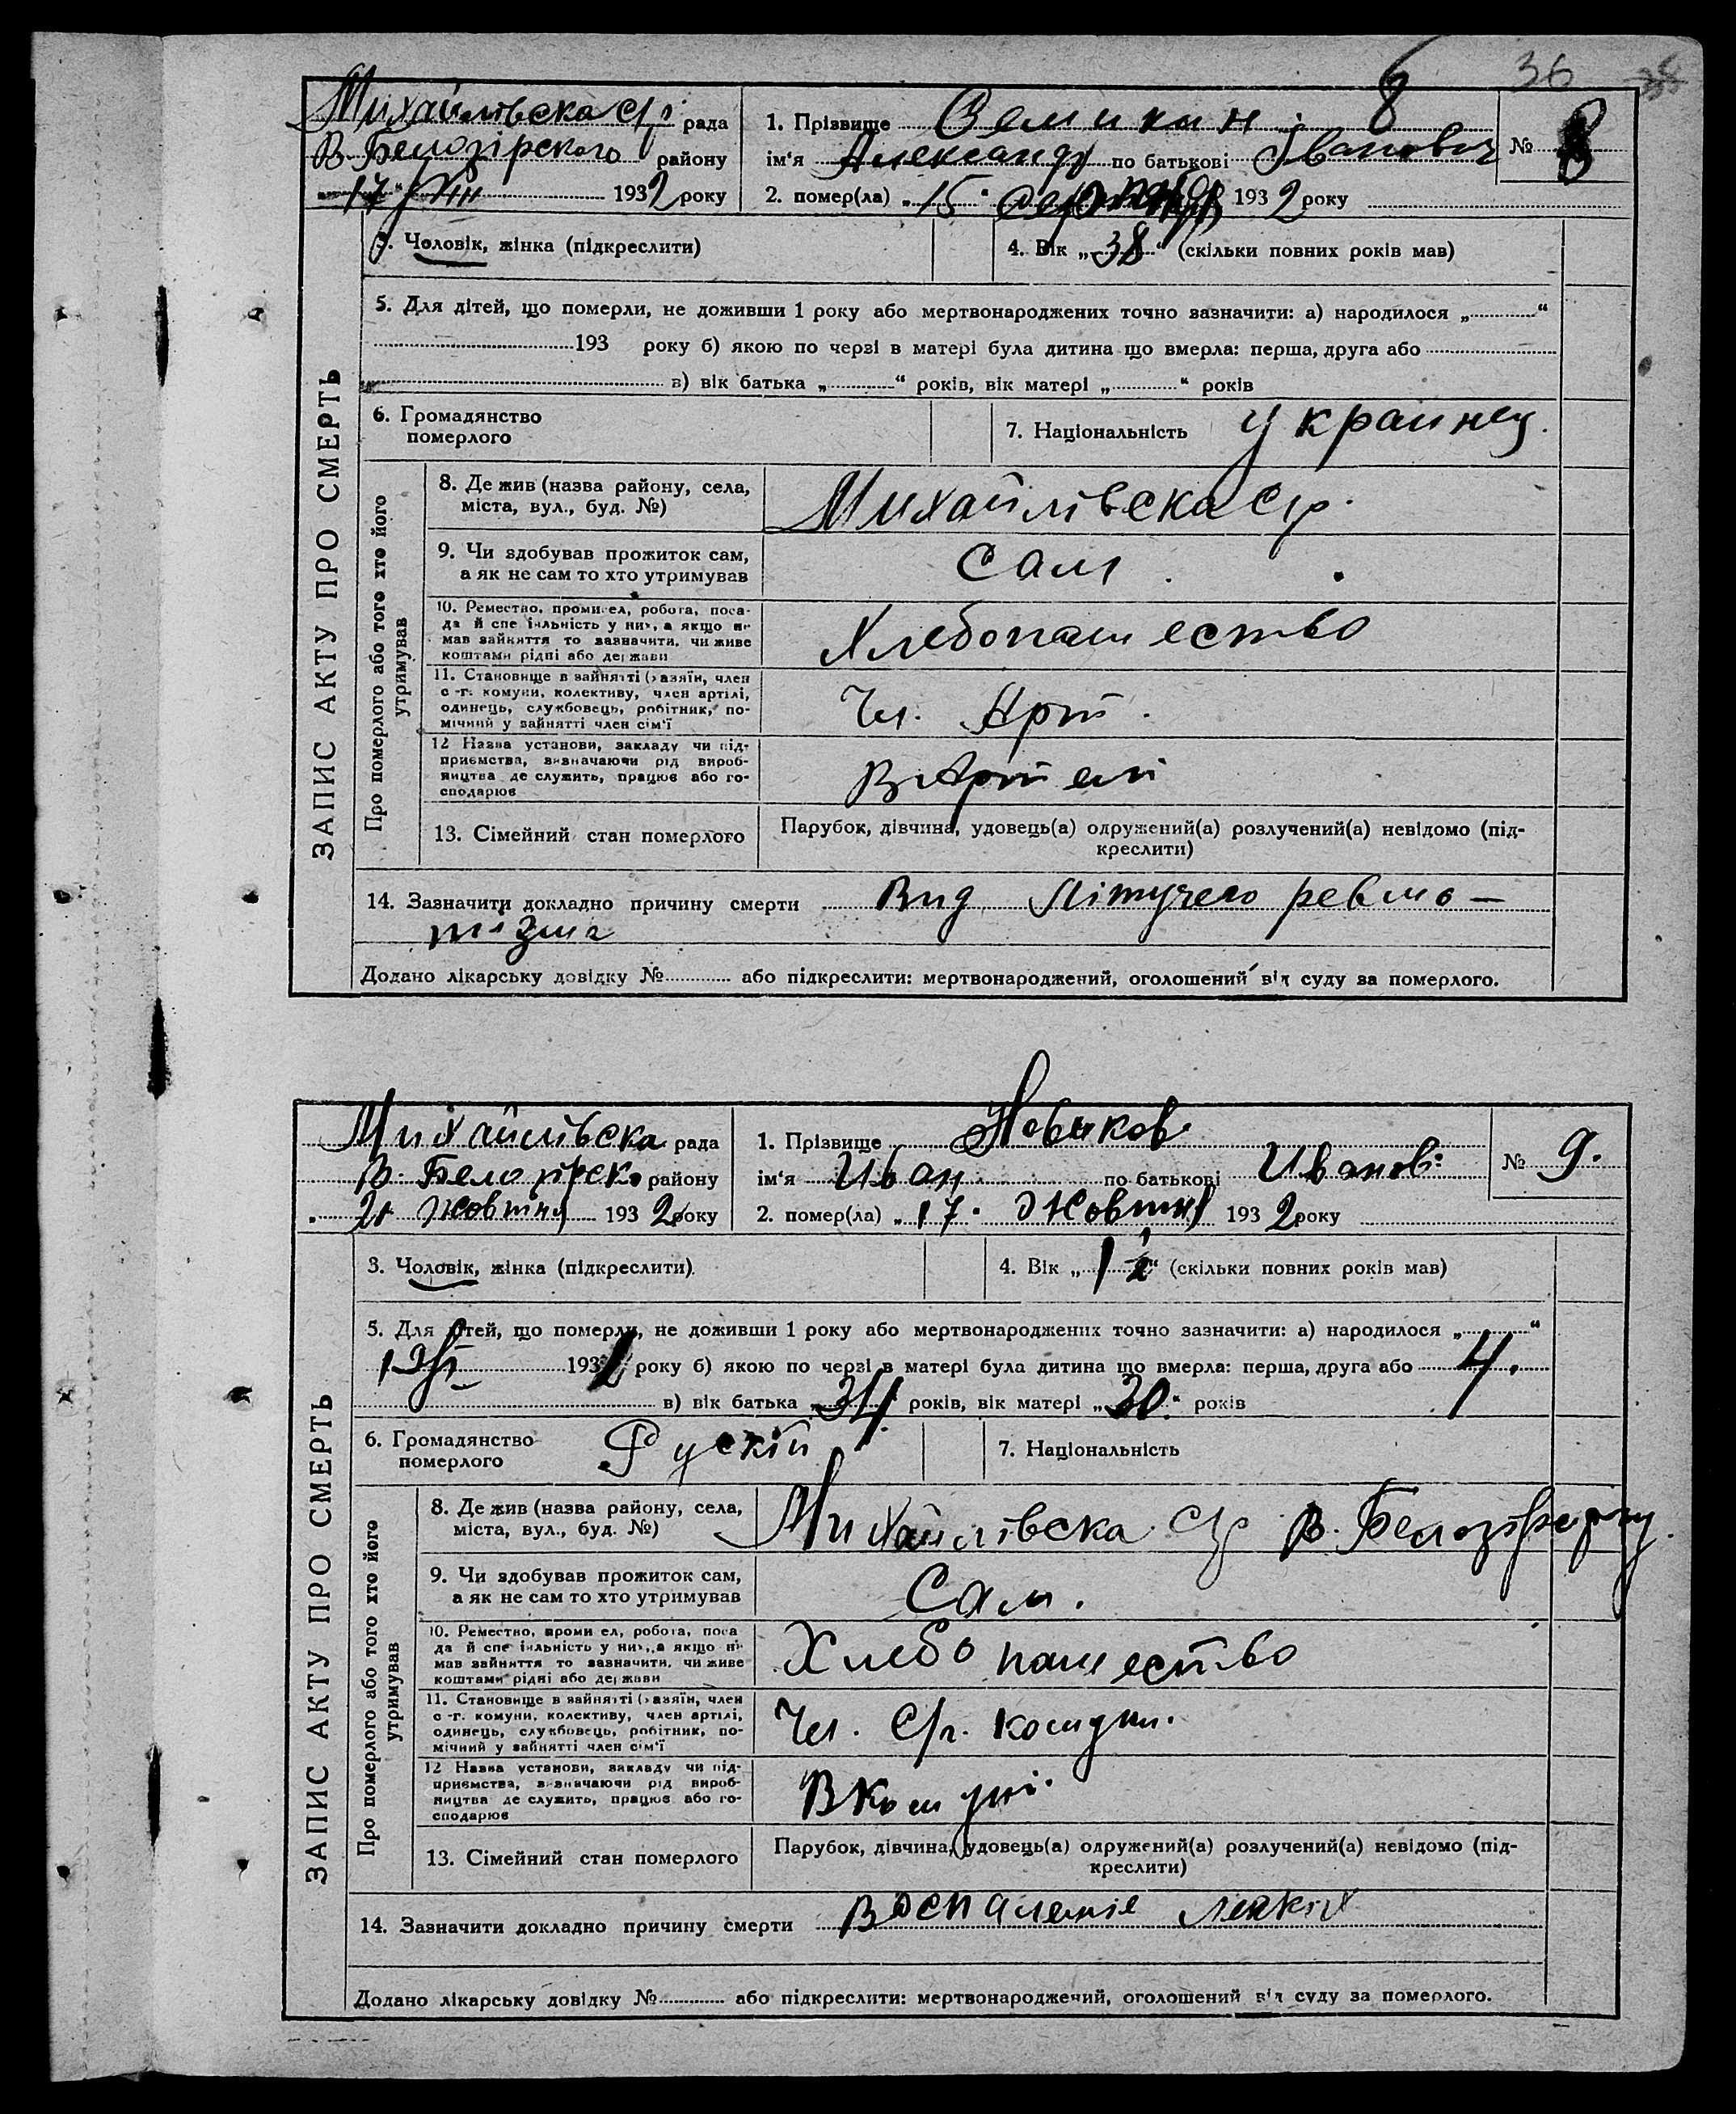 36
8
Михайлівска с/р рада
В Белозірского району
17/VIII 1932 року
1. Прізвище
ім'я Александр по батькові Іванович
2. помер(ла) „15" 1932 року
№ 8
ЗАПИС АКТУ ПРО СМЕРТЬ
3. Чоловік, жінка (підкреслити)
4. Вік „38" (скільки повних років мав)
5. Для дітей, що померли, не доживши 1 року або мертвонароджених точно зазначити: а) народилося „ "
193 року б) якою по черзі в матері була дитина що вмерла: перша, друга або
в) вік батька „ " років, вік матері „ " років
6. Громадянство
померлого
7. Національність Украинец.
Про померлого або того хто його
утримував
8. Де жив (назва району, села,
міста, вул., буд. №)
Михайлівска с/р.
9. Чи здобував прожиток сам,
а як не сам то хто утримував
Сам.
10. Ремество, промисел, робота, поса-
да й спеціяльність у них, а якщо не
мав зайняття то зазначити, чи живе
коштами рідні або держави
Хлебопашество
11. Становище в зайнятті (хазяїн, член
с.-г. комуни, колективу, член артілі,
одинець, службовець, робітник, по-
мічний у зайнятті член сім'ї
Чл. Арт.
12 Назва установи, закладу чи під-
приємства, визначаючи рід вироб-
ництва де служить, працює або го-
сподарює
В Артелі
13. Сімейний стан померлого
Парубок, дівчина, удовець(а) одружений(а) розлучений(а) невідомо (під-
креслити)
14. Зазначити докладно причину смерти Вид Літучего ревмо-
тізма
Додано лікарську довідку № або підкреслити: мертвонароджений, оголошений від суду за померлого.
Михайлівска рада
В. Белозірско району
21 жовтня 1932 року
1. Прізвище Новиков
ім'я Иван по батькові Иванов.
2. помер(ла) „17" жовтня 1932 року
№ 9.
ЗАПИС АКТУ ПРО СМЕРТЬ
3. Чоловік, жінка (підкреслити)
4. Вік „1 1/2" (скільки повних років мав)
5. Для дітей, що померли, не доживши 1 року або мертвонароджених точно зазначити: а) народилося „ "
193 року б) якою по черзі в матері була дитина що вмерла: перша, друга або 4.
в) вік батька „34" років, вік матері „30" років
6. Громадянство
померлого
Рускій
7. Національність
Про померлого або того хто його
утримував
8. Де жив (назва району, села,
міста, вул., буд. №)
Михайлівска с/р В.
9. Чи здобував прожиток сам,
а як не сам то хто утримував
Сам.
10. Ремество, промисел, робота, поса
да й спеціяльність у них, а якщо не
мав зайняття то зазначити, чи живе
коштами рідні або держави
Хлебопашество
11. Становище в зайнятті (хазяїн, член
с.-г. комуни, колективу, член артілі,
одинець, службовець, робітник, по-
мічний у зайнятті член сім'ї
Чл. С/г. комун.
12 Назва установи, закладу чи під-
приємства, визначаючи рід вироб-
ництва де служить, працює або го-
сподарює
В комуні
13. Сімейний стан померлого
Парубок, дівчина, удовець(а) одружений(а) розлучений(а) невідомо (під-
креслити)
14. Зазначити докладно причину смерти Воспаленіе легкіх
Додано лікарську довідку № або підкреслити: мертвонароджений, оголошений від суду за померлого.